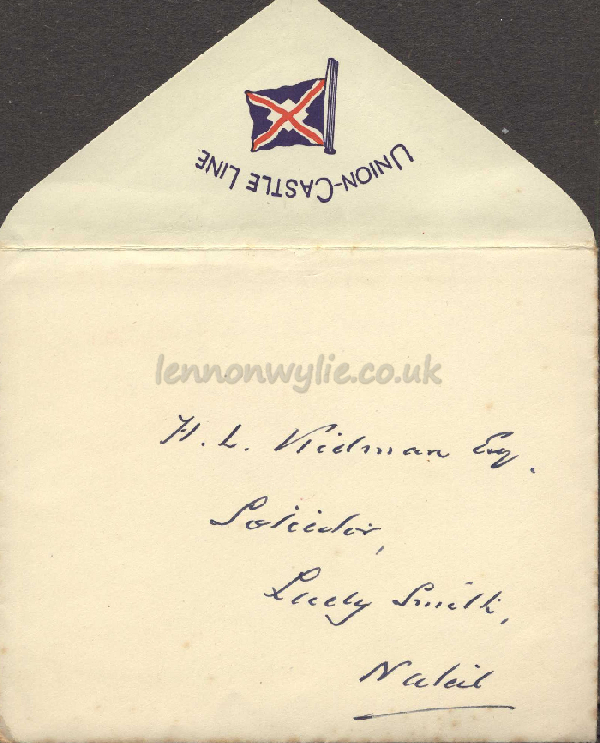 UNION-CASTLE LINE
lennonwylie.co.uk
H. L. Kidman Esq.
Solicitor,
Lady Smith,
Natal